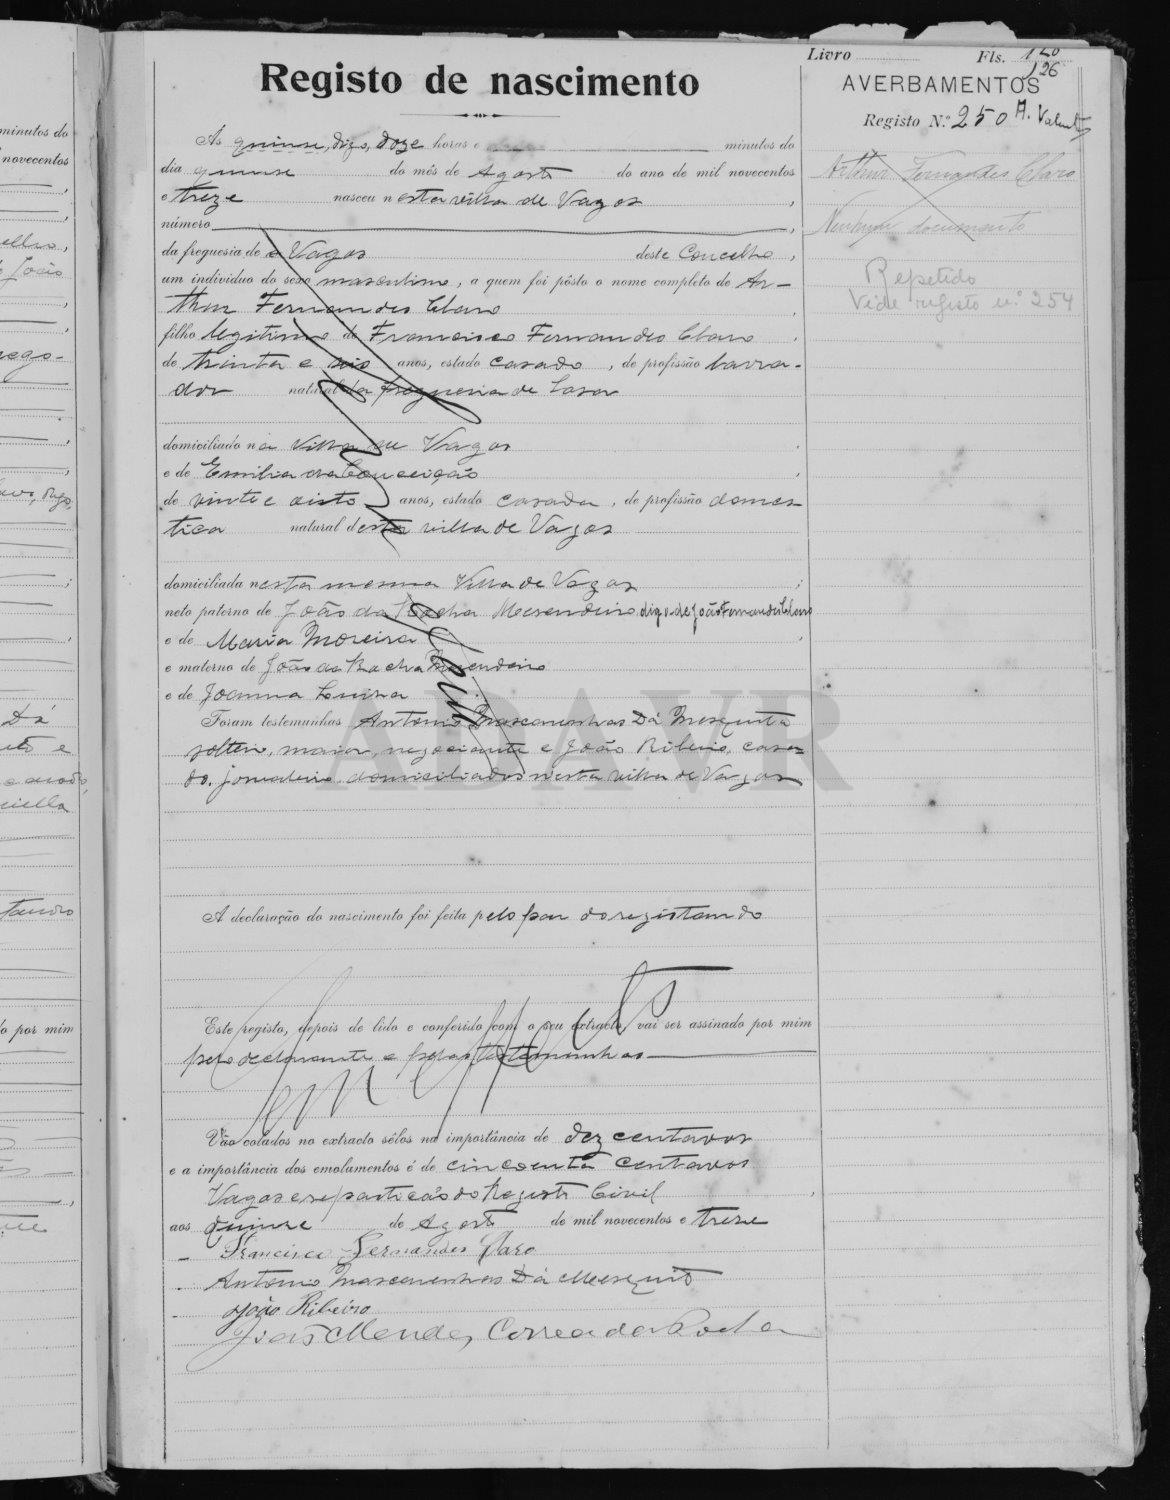 Livro Fls. 120
126
Registo de nascimento
AVERBAMENTOS
Registo N.º 250 A.
Às quinse, digo, doze horas e minutos do
dia quinse do mês de Agosto do ano de mil novecentos
e treze nasceu nesta villa de Vagos,
número
da freguesia de Vagos deste Concelho,
um indivíduo do sexo masculino, a quem foi pôsto o nome completo de Ar-
thur Fernandes Claro
filho legitimo de Francisco Fernandes Claro
de trinta e seis anos, estado casado, de profissão lavra-
dor natural da freguesia de Soza
domiciliado na villa de Vagos
e de Emilia da Conceição
de vinte e oito anos, estado casada, de profissão domes-
tica natural desta villa de Vagos
domiciliada nesta mesma Villa de Vagos;
neto paterno de João da Rocha Mesendeiro digo de João Fernandes Claro
e de Maria Moreira
e materno de João da Rocha Mesendeiro
e de Joanna Luisa
Foram testemunhas Antonio Mascarenhas Dá Mesquita
solteiro, maior, negociante e João Ribeiro, casa-
do, jornaleiro domiciliados nesta villa de Vagos
A declaração do nascimento foi feita pelo pae do registando
Este registo, depois de lido e conferido com o seu extracto, vai ser assinado por mim
pelo declarante e pelas testemunhas
Sem effeito
Vão colados no extracto sêlos na importância de dez centavos
e a importância dos emolumentos é de cincoenta centavos
Vagos e repartição do Registo Civil,
aos quinse de Agosto de mil novecentos e treze
Francisco Fernandes Claro
Antonio Mascarenhas Dá Mesquita
João Ribeiro
João Mendes Correa da Rocha
Arthur Fernandes Claro
Nenhum documento
Repetido
Vide registo n.º 254
Sem effeito
ADAVR
minutos do
novecentos
João
Dá
por mim